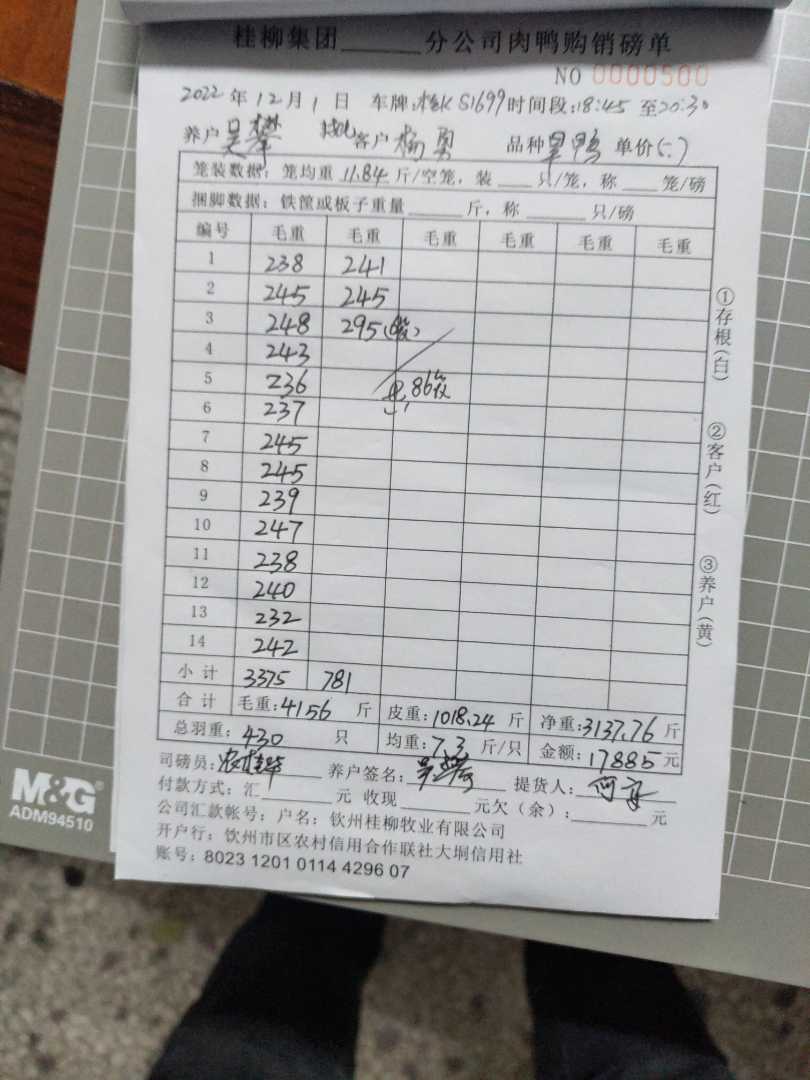 桂柳集团______分公司肉鸭购销磅单
NO 0000500
2022 年 12 月 1 日 车牌:桂K S1699 时间段:18:45 至20:30
养户 吴攀 客户 杨勇 品种 鸭 单价(:)
笼装数据: 笼均重 11.84 斤/空笼, 装___只/笼, 称___笼/磅
捆脚数据: 铁筐或板子重量______斤, 称______只/磅
编号 毛重 毛重 毛重 毛重 毛重 毛重
1 238 241
2 245 245
3 248 295(6笼)
4 243
5 236 共86笼
6 237
7 245
8 245
9 239
10 247
11 238
12 240
13 232
14 242
小计 3375 781
合计 毛重:4156 斤 皮重:1018.24 斤 净重:3137.76 斤
总羽重: 430 只 均重:7.3 斤/只 金额:17885 元
司磅员: 养户签名: 吴攀 提货人:
付款方式: 汇______元 收现______元欠(余):______元
公司汇款帐号: 户名: 钦州桂柳牧业有限公司
开户行: 钦州市区农村信用合作联社大垌信用社
账号: 8023 1201 0114 4296 07
①存根(白)
②客户(红)
③养户(黄)
M&G
ADM94510